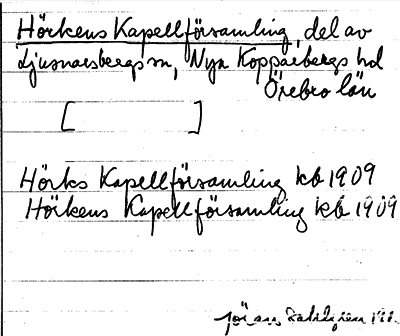 Hörkens Kapellförsamling, del av
Ljusnarsbergs sn, Nya Kopparbergs hd
Örebro län
[ ]
Hörks Kapellförsamling kb 1909
Hörkens Kapellförsamling kb 1909